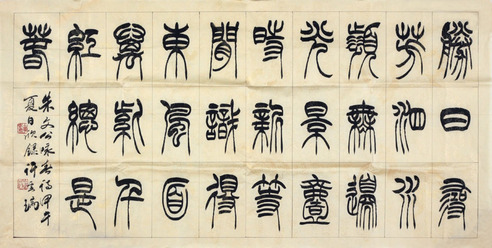 勝日尋
芳泗水
濱無邊
光景壹
時新等
閒識得
東風面
萬紫千
紅總是
春
朱文公詠春詩甲午
夏日欣錄